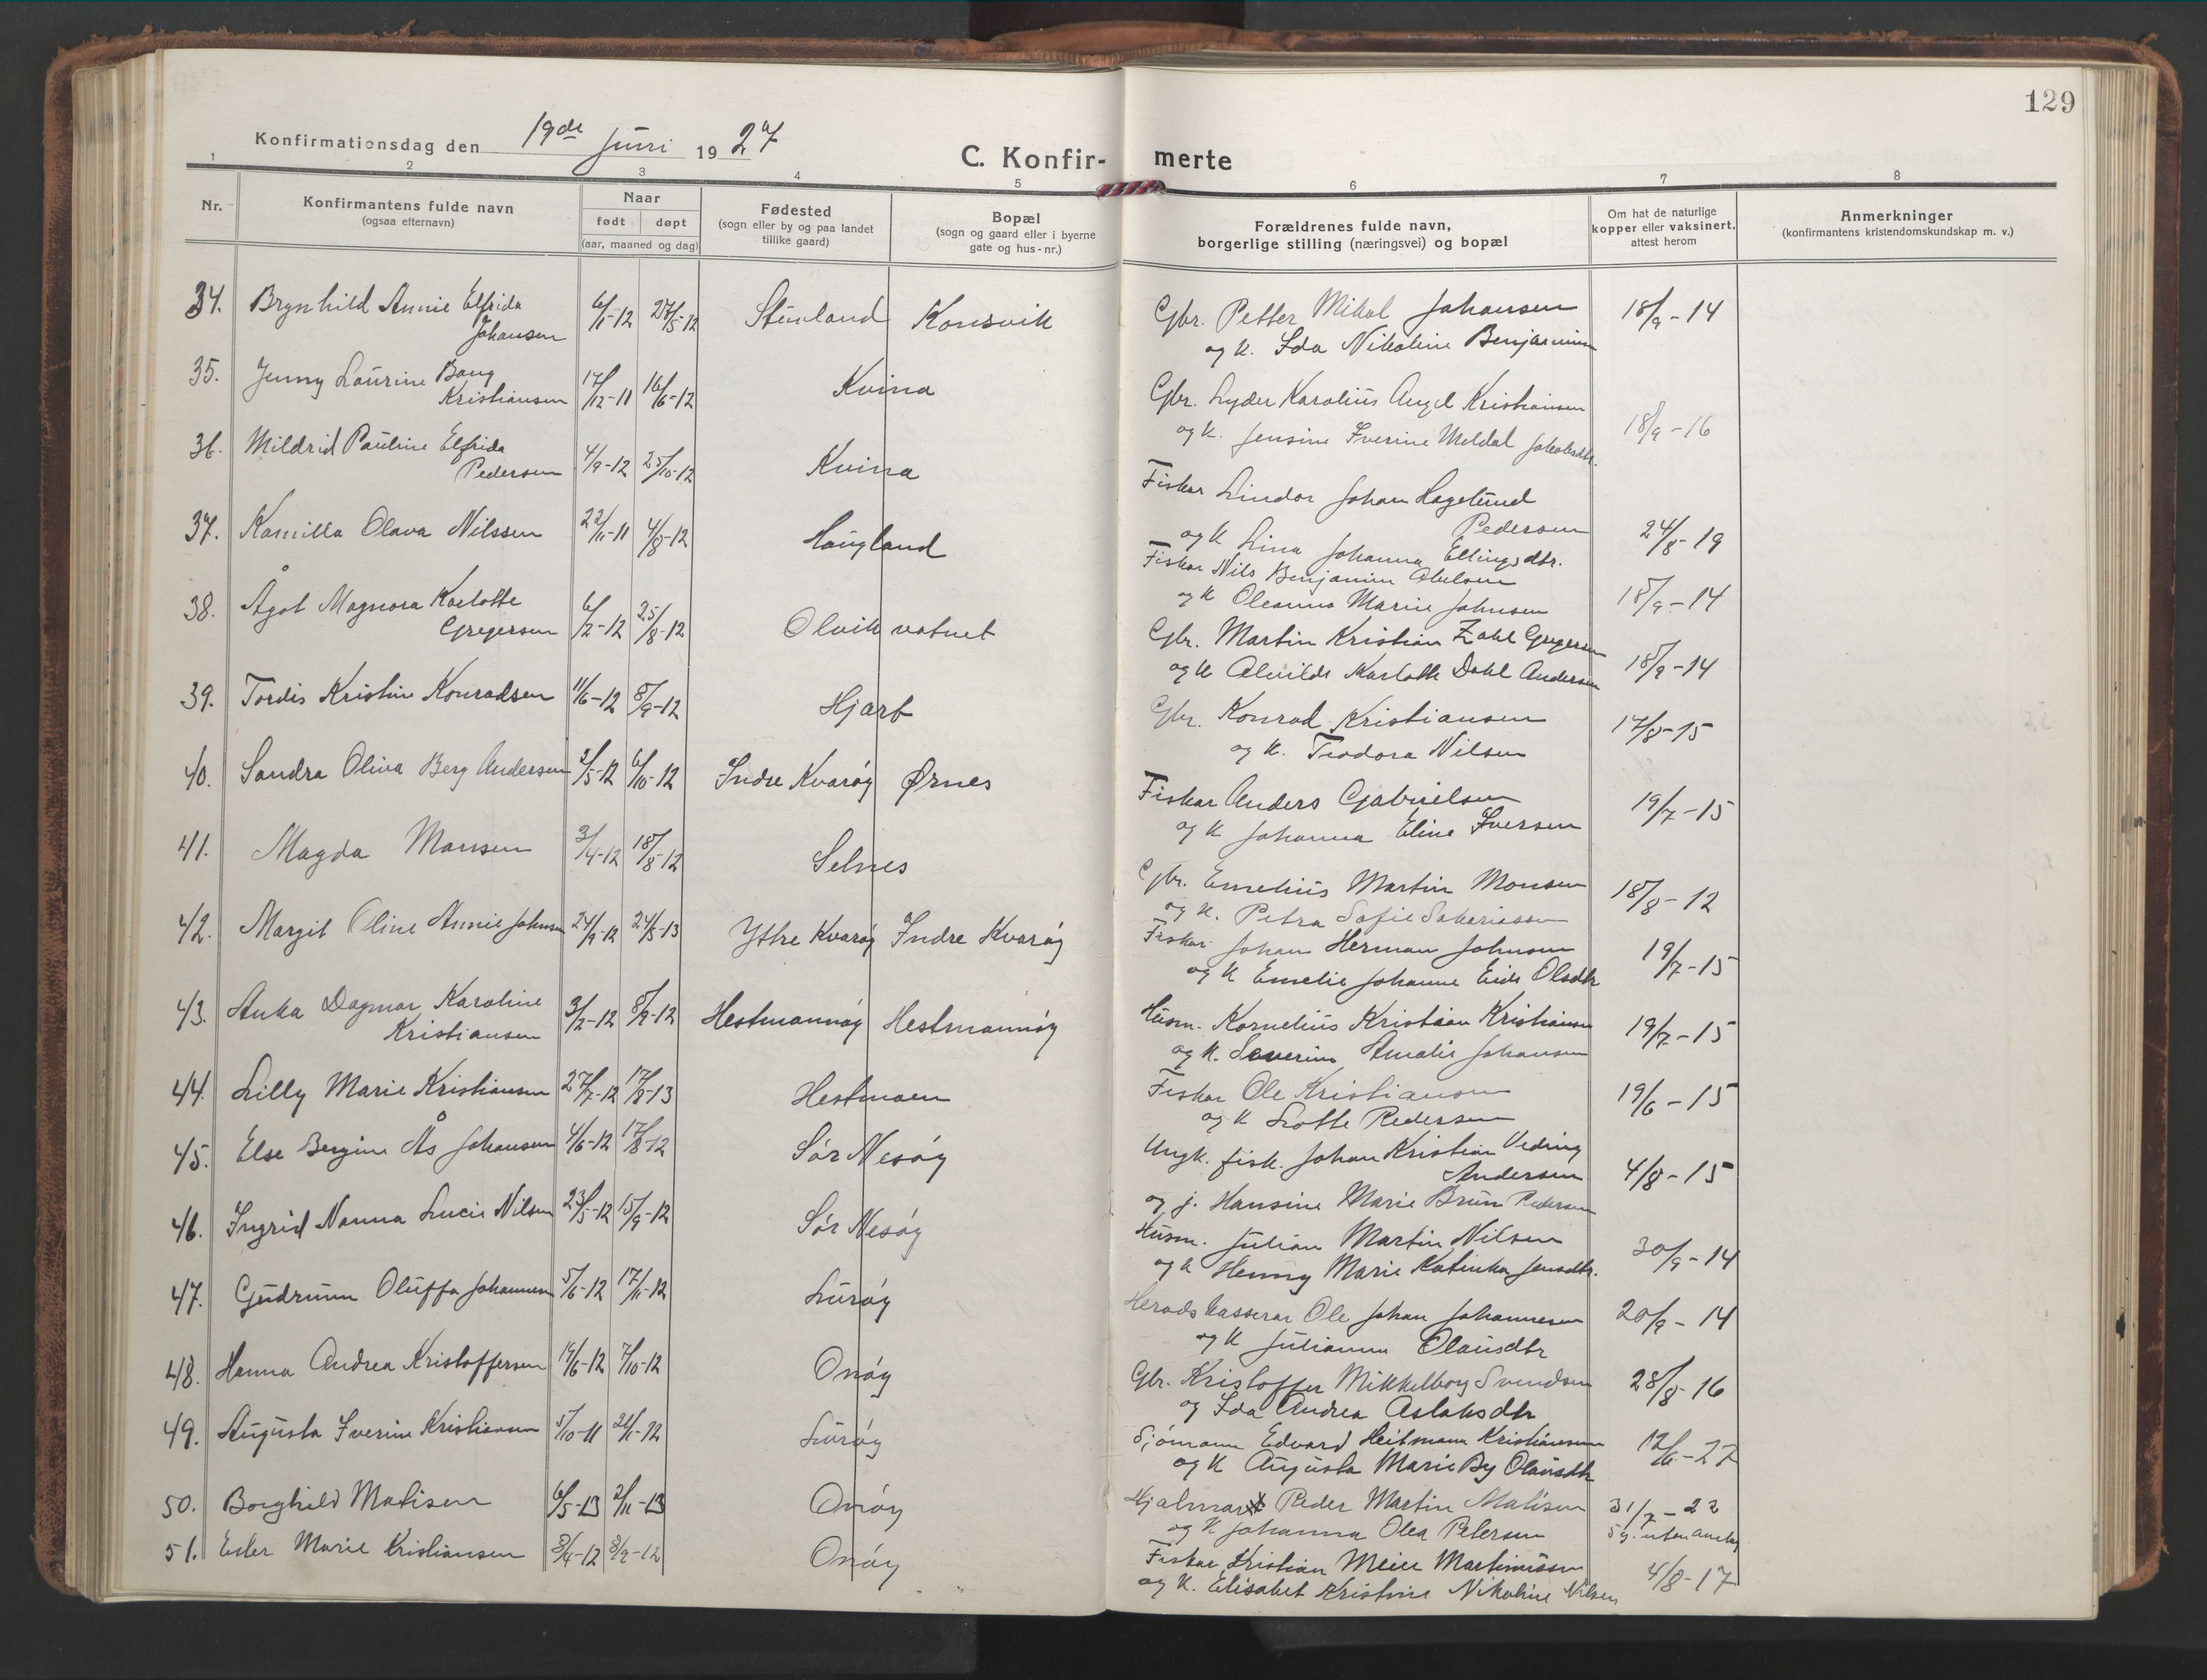 129
Konfirmationsdag den 19de Juni 1927
C. Konfirmerte
1 2 3 4 5 6 7 8
Nr.
Konfirmantens fulde navn
(ogsaa efternavn)
Naar
født døpt
(aar, maaned og dag)
Fødested
(sogn eller by og paa landet
tillike gaard)
Bopæl
(sogn og gaard eller i byerne
gate og hus-nr.)
Forældrenes fulde navn,
borgerlige stilling (næringsvei) og bopæl
Om hat de naturlige
kopper eller vaksinert,
attest herom
Anmerkninger
(konfirmantens kristendomskundskap m. v.)
34. Brynhild Annie Elfrida
Johansen 6/1-12 27/5-12 Stuvland Konsvik
Gbr. Petter Mikal Johansen 18/9-14
og K. Ida Nikoline Benjaminsen
35. Jenny Laurine Bang
Kristiansen 17/12-11 16/6-12 Kvina
Gbr. Lyder Karolius Angel Kristiansen
og K. Jensine Iverine Meldal Jakobsdtr. 18/9-16
36. Mildrid Pauline Elfrida
Pedersen 4/9-12 25/10-12 Kvina
Fiskar Lindor Johan Hagelund
Pedersen 24/8-19
og K Lina Johanna Ellingsdtr.
37. Kamilla Olava Nilssen 22/11-11 4/8-12 Haugland
Fiskar Nils Benjamin Abelsen
og K Oleanna Marie Johnsen 18/9-14
38. Ågot Magnora Karlotte
Gregersen 6/2-12 25/8-12 Olvikvatnet
Gbr. Martin Kristian Zahl Gregersen
og K Alvilde Karlotte Dahl Andersen 18/9-14
39. Tordis Kristin Konradsen 11/6-12 8/9-12 Hjart
Gbr. Konrad Kristiansen 17/8-15
og K. Teodora Nilsen
40. Sandra Oliva Berg Andersen 2/5-12 6/10-12 Indre Kvarøy Ørnes
Fiskar Anders Gabrielsen 19/7-15
og K Johanna Eline Iversen
41. Magda Monsen 3/4-12 18/8-12 Selnes
Gbr. Emelius Martin Monsen 18/8-12
og K. Petra Sofie Sakariassen
42. Margit Oline Annie Johnsen 24/9-12 24/5-13 Ytre Kvarøy Indre Kvarøy
Fiskar Johan Herman Johnsen 19/7-15
og K Emelie Johanne Erik Olsdtr
43. Anka Dagmar Karoline
Kristiansen 3/2-12 8/9-12 Hestmannøy Hestmannøy
Husm. Kornelius Kristian Kristiansen 19/7-15
og K. Severine Amalie Johansen
44. Lilly Marie Kristiansen 27/7-12 17/8-13 Hestmoen
Fiskar Ole Kristiansen 19/6-15
og K Lotte Pedersen
45. Else Bergine Ås Johansen 4/6-12 17/8-12 Sør Nesøy
Ungk. fisk. Johan Kristian Veding
Andersen 4/8-15
og j. Hansine Marie Brun Pedersen
46. Ingrid Nanna Lucie Nilsen 23/5-12 15/9-12 Sør Nesøy
Husm. Julian Martin Nilsen 30/9-14
og K Henny Marie Katinka Jensdtr.
47. Gudrunn Oluffa Johannesen 5/6-12 17/11-12 Lurøy
Heradskasserar Ole Johan Johannesen 20/9-14
og K Julianna Olausdtr
48. Hanna Andrea Kristoffersen 14/6-12 7/10-12 Onøy
Gbr. Kristoffer Mikkelborg Svendsen 28/8-16
og Ida Andrea Aslaksdtr
49. Augusta Iverine Kristiansen 5/10-11 21/1-12 Lurøy
Sjømann Edvard Heitmann Kristiansen 12/6-27
og K Augusta Marie By Olausdtr
50. Borghild Matisen 6/5-13 2/11-13 Onøy
Hjalmar Peder Martin Matisen 31/7-22
og K Johanna Olea Petersen 59. uten anslag
51. Ester Marie Kristiansen 8/4-12 8/9-12 Onøy
Fiskar Kristian Meier Martinussen 4/8-17
og K. Elisabet Kristine Nikoline Nilsen